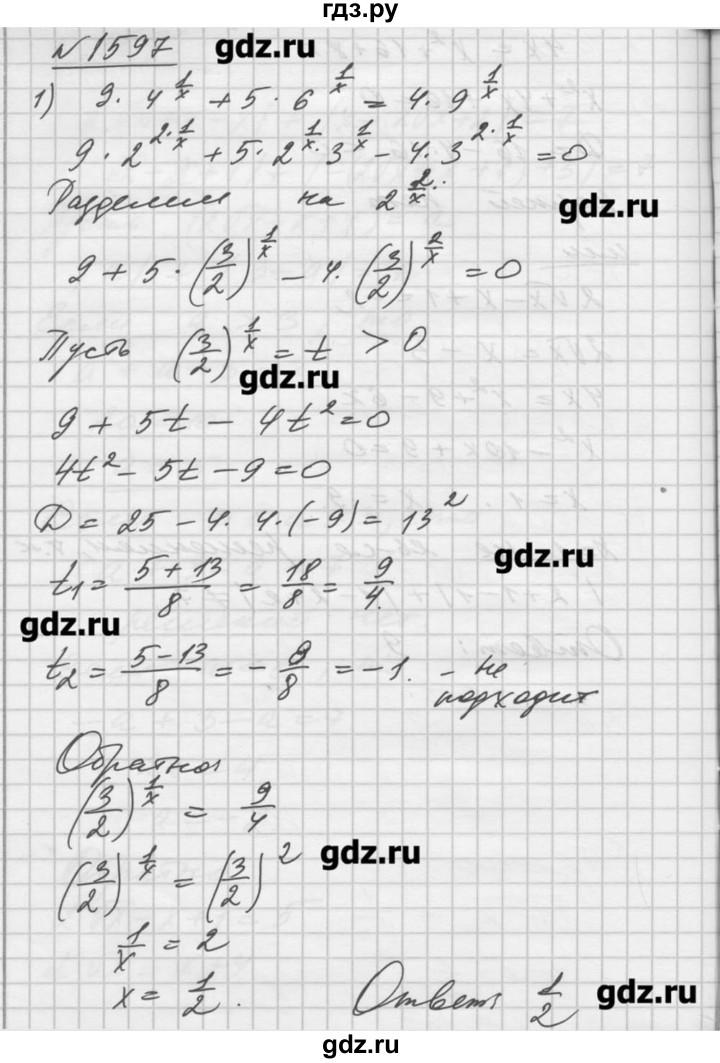 гдз.ру
№ 1597 gdz.ru
1) 9·4^(1/x) + 5·6^(1/x) = 4·9^(1/x)
9·2^(2·1/x) + 5·2^(1/x)·3^(1/x) - 4·3^(2·1/x) = 0
Разделим на 2^(2/x):
gdz.ru
9 + 5·(3/2)^(1/x) - 4·(3/2)^(2/x) = 0
Пусть (3/2)^(1/x) = t > 0
gdz.ru
9 + 5t - 4t² = 0
4t² - 5t - 9 = 0
D = 25 - 4·4·(-9) = 13²
gdz.ru
t₁ = (5+13)/8 = 18/8 = 9/4.
gdz.ru
t₂ = (5-13)/8 = -8/8 = -1. - не
подходит
Обратно:
(3/2)^(1/x) = 9/4
gdz.ru
(3/2)^(1/x) = (3/2)²
1/x = 2
x = 1/2. Ответ: 1/2
gdz.ru
gdz.ru